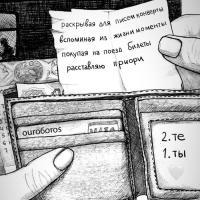 раскрывая для писем конверты
вспоминая из жизни моменты
покупая на поезд билеты
расставляю приори
ouroboros
2. те
1. ты